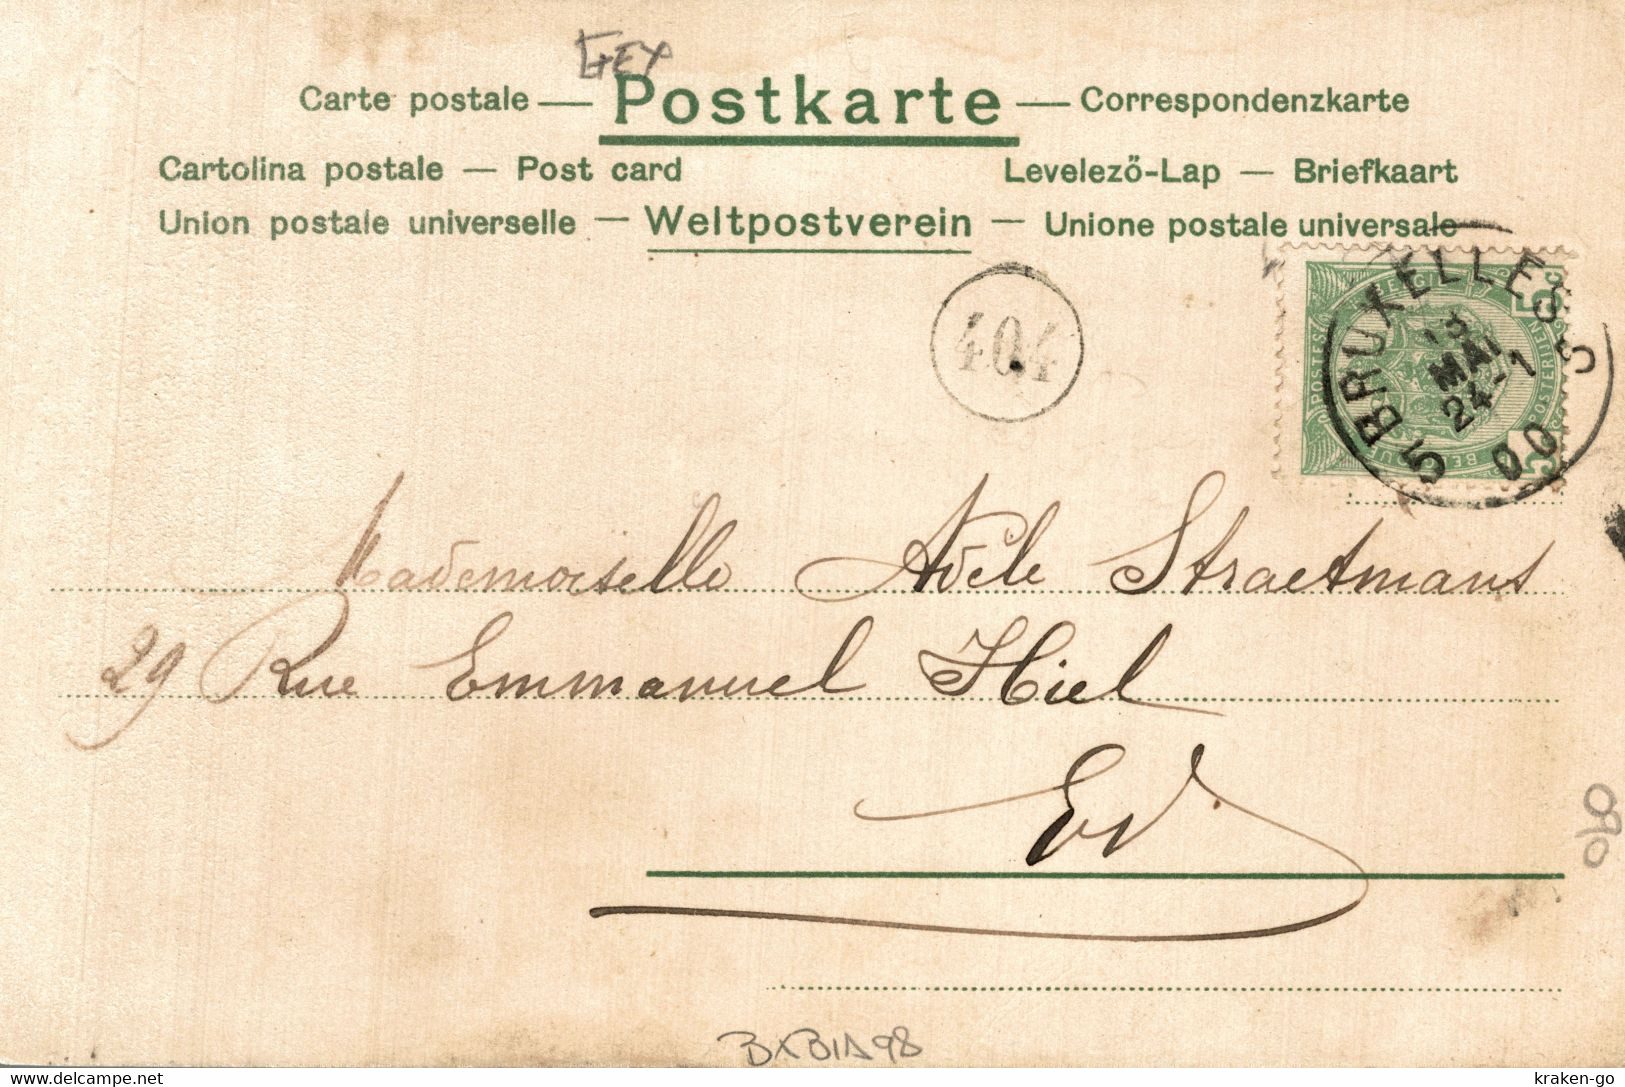 Carte postale — Postkarte — Correspondenzkarte
Cartolina postale — Post card Levelező-Lap — Briefkaart
Union postale universelle — Weltpostverein — Unione postale universale
404
BRUXELLES 5
13
MAI
24-1
00
5
Mademoiselle Adele Straetmans
29 Rue Emmanuel Hiel
EV
BXB1A98
delcampe.net
kraken-go